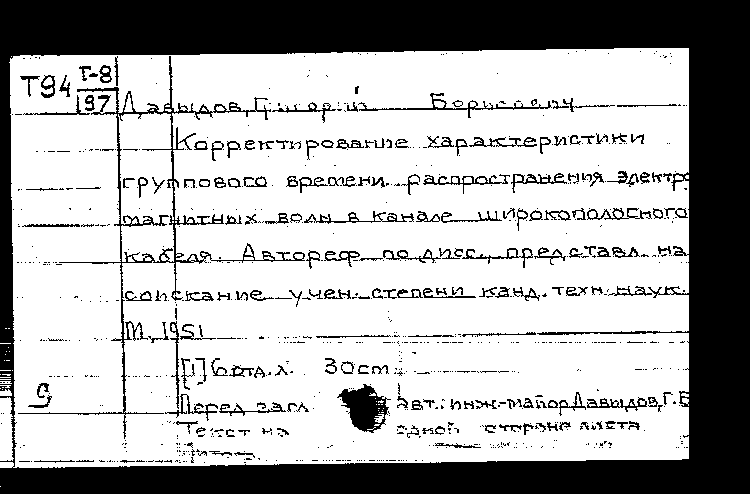 Т94 Т-8
197
Давыдов, Григорий Борисович
Корректирование характеристики
группового времени распространения электро
магнитных волн в канале широкополосного
кабеля. Автореф. по дисс., представл. на
соискание учен. степени канд. техн. наук.
М., 1951
[1] 6 отд. л. 30cm.
Перед загл. авт.: инж-майор Давыдов, Г.Б
Текст на одной стороне листа